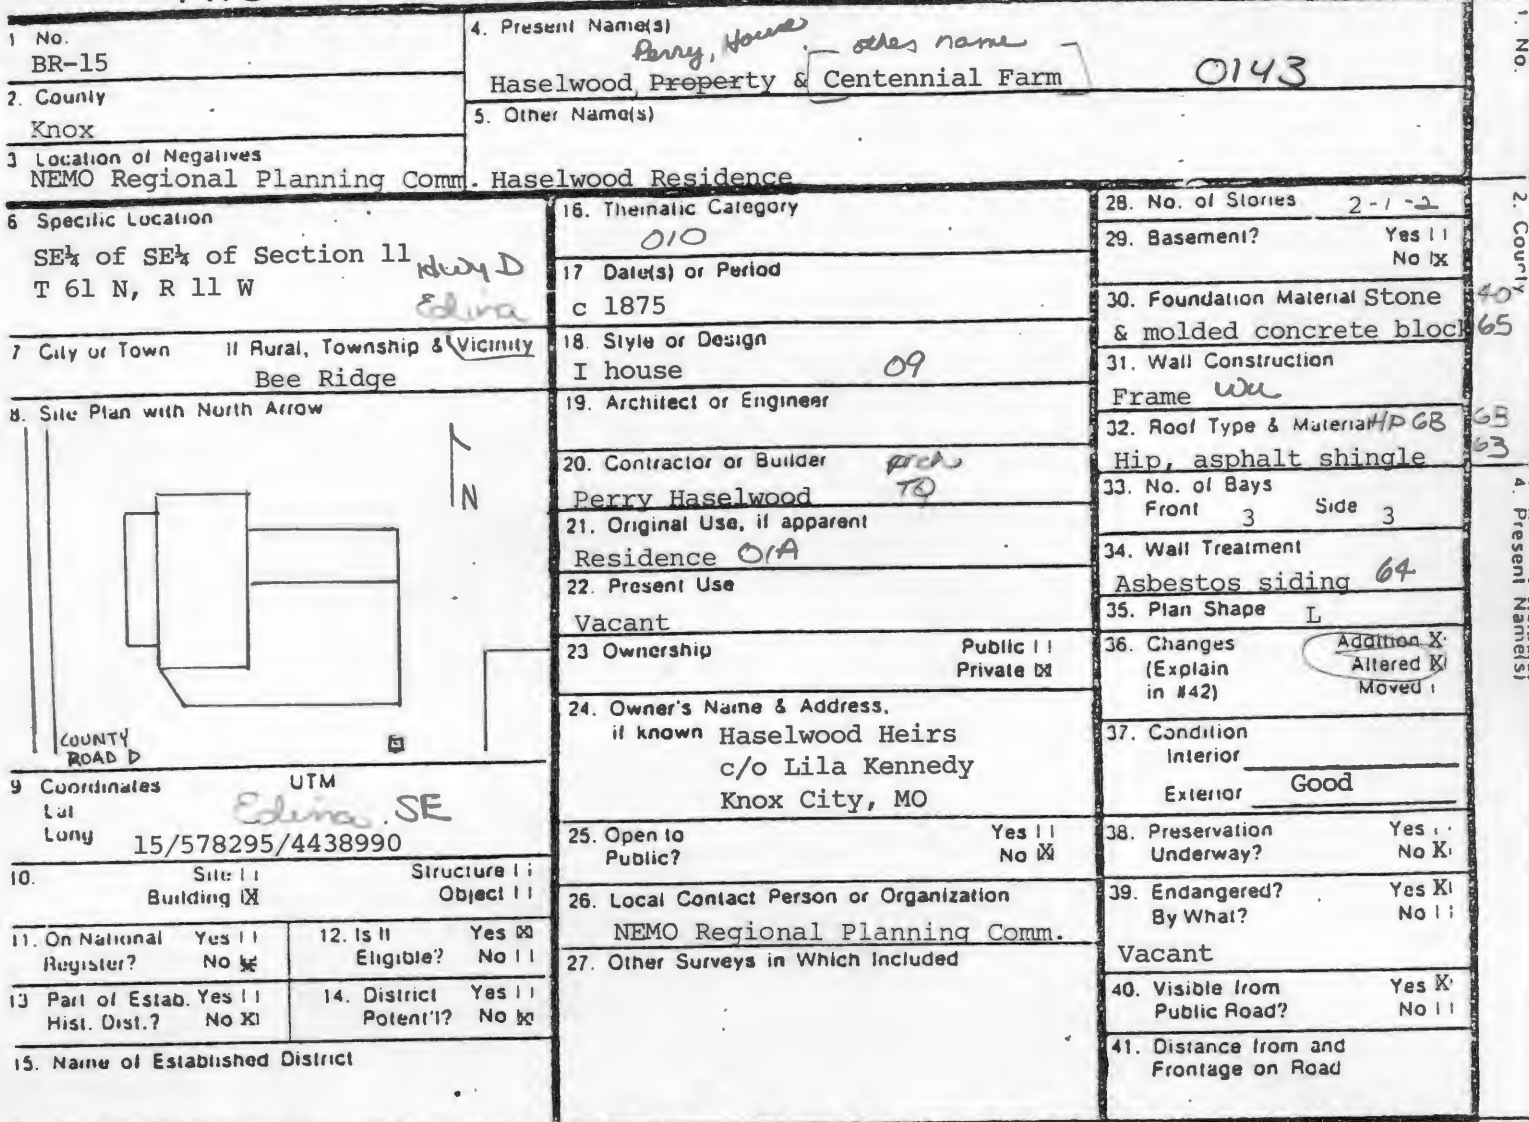 1 No.
BR-15
2. County
Knox
3 Location of Negatives
NEMO Regional Planning Comm.
4. Present Name(s)
Perry, House
other name
Haselwood, Property & Centennial Farm
0143
5. Other Name(s)
Haselwood Residence
6 Specific Location
SE¼ of SE¼ of Section 11
T 61 N, R 11 W
Hwy D
Edina
7 City or Town If Rural, Township & Vicinity
Bee Ridge
8. Site Plan with North Arrow
N
COUNTY
ROAD D
9 Coordinates UTM
Lat
Long
Edina, SE
15/578295/4438990
10. Site | | Structure | |
Building |X| Object | |
11. On National Register? Yes | | No |X|
12. Is It Eligible? Yes |X| No | |
13 Part of Estab. Hist. Dist.? Yes | | No X|
14. District Potent'l? Yes | | No |X|
15. Name of Established District
16. Thematic Category
010
17 Date(s) or Period
c 1875
18. Style or Design
I house 09
19. Architect or Engineer
20. Contractor or Builder
Perry Haselwood
21. Original Use, if apparent
Residence 01A
22. Present Use
Vacant
23 Ownership Public | |
Private |X|
24. Owner's Name & Address,
if known Haselwood Heirs
c/o Lila Kennedy
Knox City, MO
25. Open to Public? Yes | | No |X|
26. Local Contact Person or Organization
NEMO Regional Planning Comm.
27. Other Surveys in Which Included
28. No. of Stories 2-1-2
29. Basement? Yes | |
No |X
30. Foundation Material Stone
& molded concrete block
40
65
31. Wall Construction
Frame
32. Roof Type & Material HP GB
Hip, asphalt shingle
GB
63
33. No. of Bays
Front 3 Side 3
34. Wall Treatment
Asbestos siding 64
35. Plan Shape L
36. Changes Addition X
(Explain Altered X|
in #42) Moved |
37. Condition
Interior
Exterior Good
38. Preservation Underway? Yes | | No X|
39. Endangered? Yes X|
By What? No | |
Vacant
40. Visible from Public Road? Yes X| No | |
41. Distance from and
Frontage on Road
1. No.
2. County
4. Present Name(s)